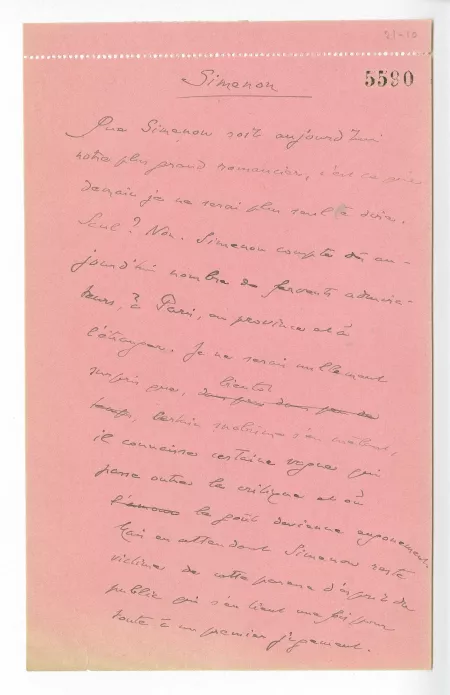 21-10
5590
Simenon
Que Simenon soit aujourd'hui
notre plus grand romancier, c'est ce que
demain je ne serai plus seul à dire.
Seul ? Non. Simenon compte dès au-
jourd'hui nombre de fervents admira-
teurs, à Paris, en province et à
l'étranger. Je ne serais nullement
bientôt
surpris que, dans peu
temps, certain snobisme s'en mêlant,
il connaisse certaine vogue qui
passe outre la critique et où
le goût devienne engouement.
Mais en attendant Simenon reste
victime de cette paresse d'esprit du
public qui s'en tient une fois pour
toute à un premier jugement.